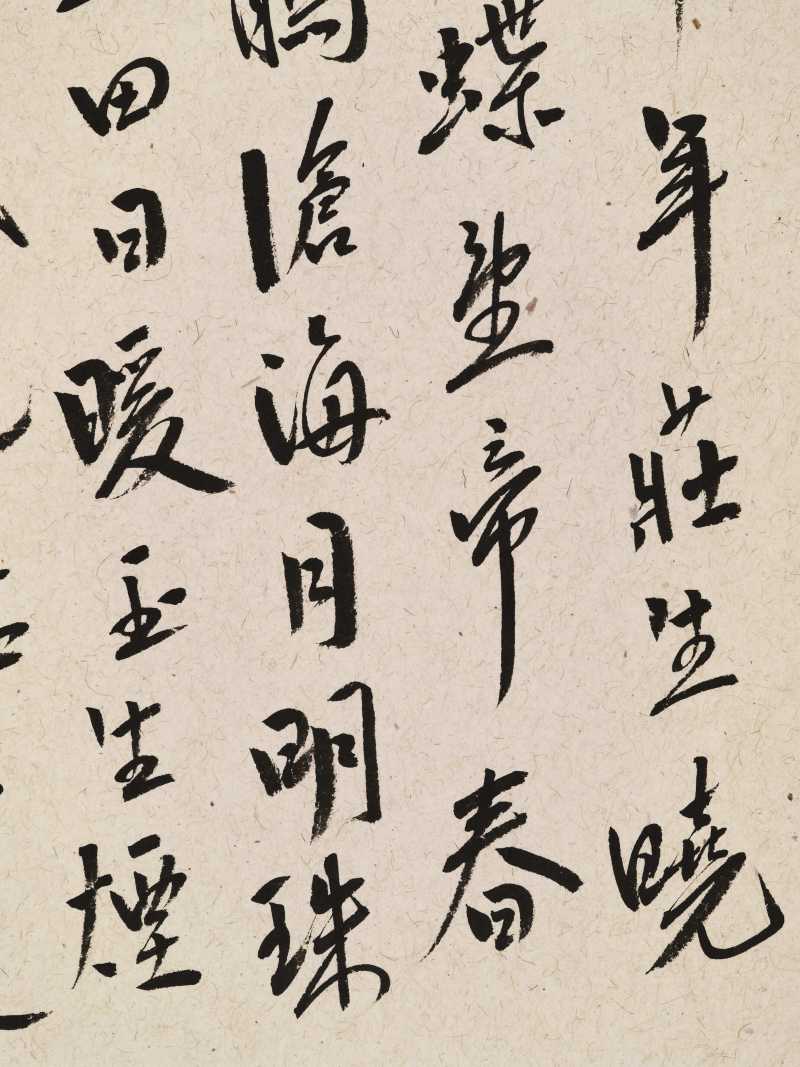 年莊生曉
蝶望帝春
滄海月明珠
田日暖玉生煙